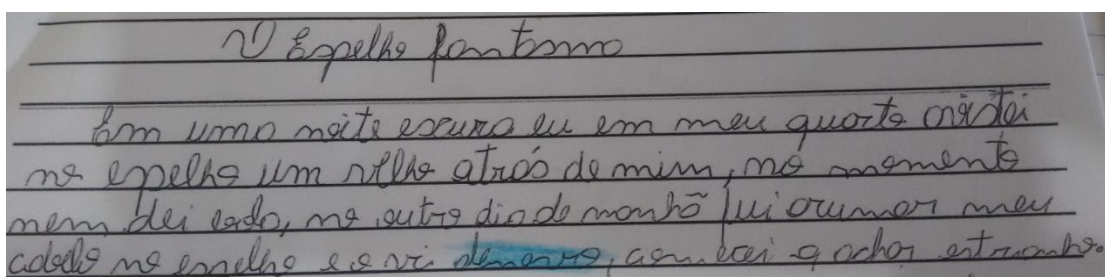 O Espelho fantasma
Em uma noite escura eu em meu quarto avistei
no espelho um velho atrás de mim, no momento
nem dei , no outro dia de manhã fui arumar meu
cabelo no espelho e o vi de novo, comecei a achar estranho.